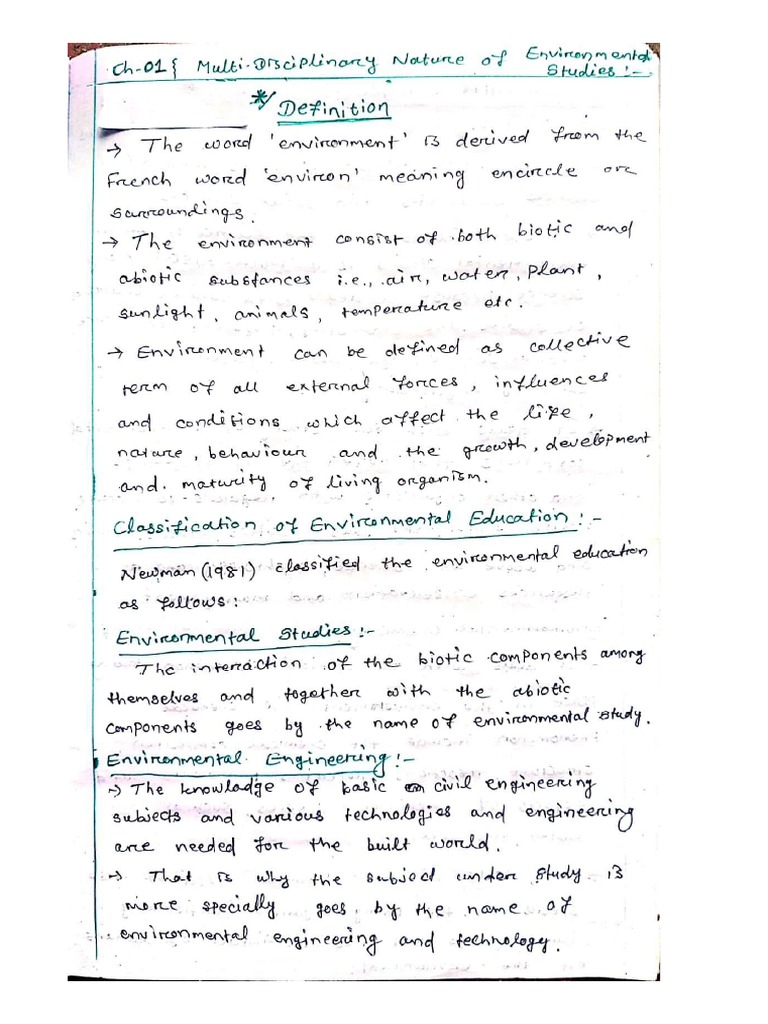 Ch-01 { Multi-Disciplinary Nature of Environmental
Studies :-
* Definition
→ The word 'environment' is derived from the
French word 'environ' meaning encircle or
surroundings.
→ The environment consist of both biotic and
abiotic substances i.e., air, water, plant,
sunlight, animals, temperature etc.
→ Environment can be defined as collective
term of all external forces, influences
and conditions which affect the life,
nature, behaviour and the growth, development
and maturity of living organism.
Classification of Environmental Education :-
Newman (1981) classified the environmental education
as follows :
Environmental Studies :-
The interaction of the biotic components among
themselves and together with the abiotic
components goes by the name of environmental study.
Environmental Engineering :-
→ The knowladge of basic civil engineering
subjects and various technologies and engineering
are needed for the built world.
→ That is why the subject under study is
more specially goes by the name of
environmental engineering and technology.